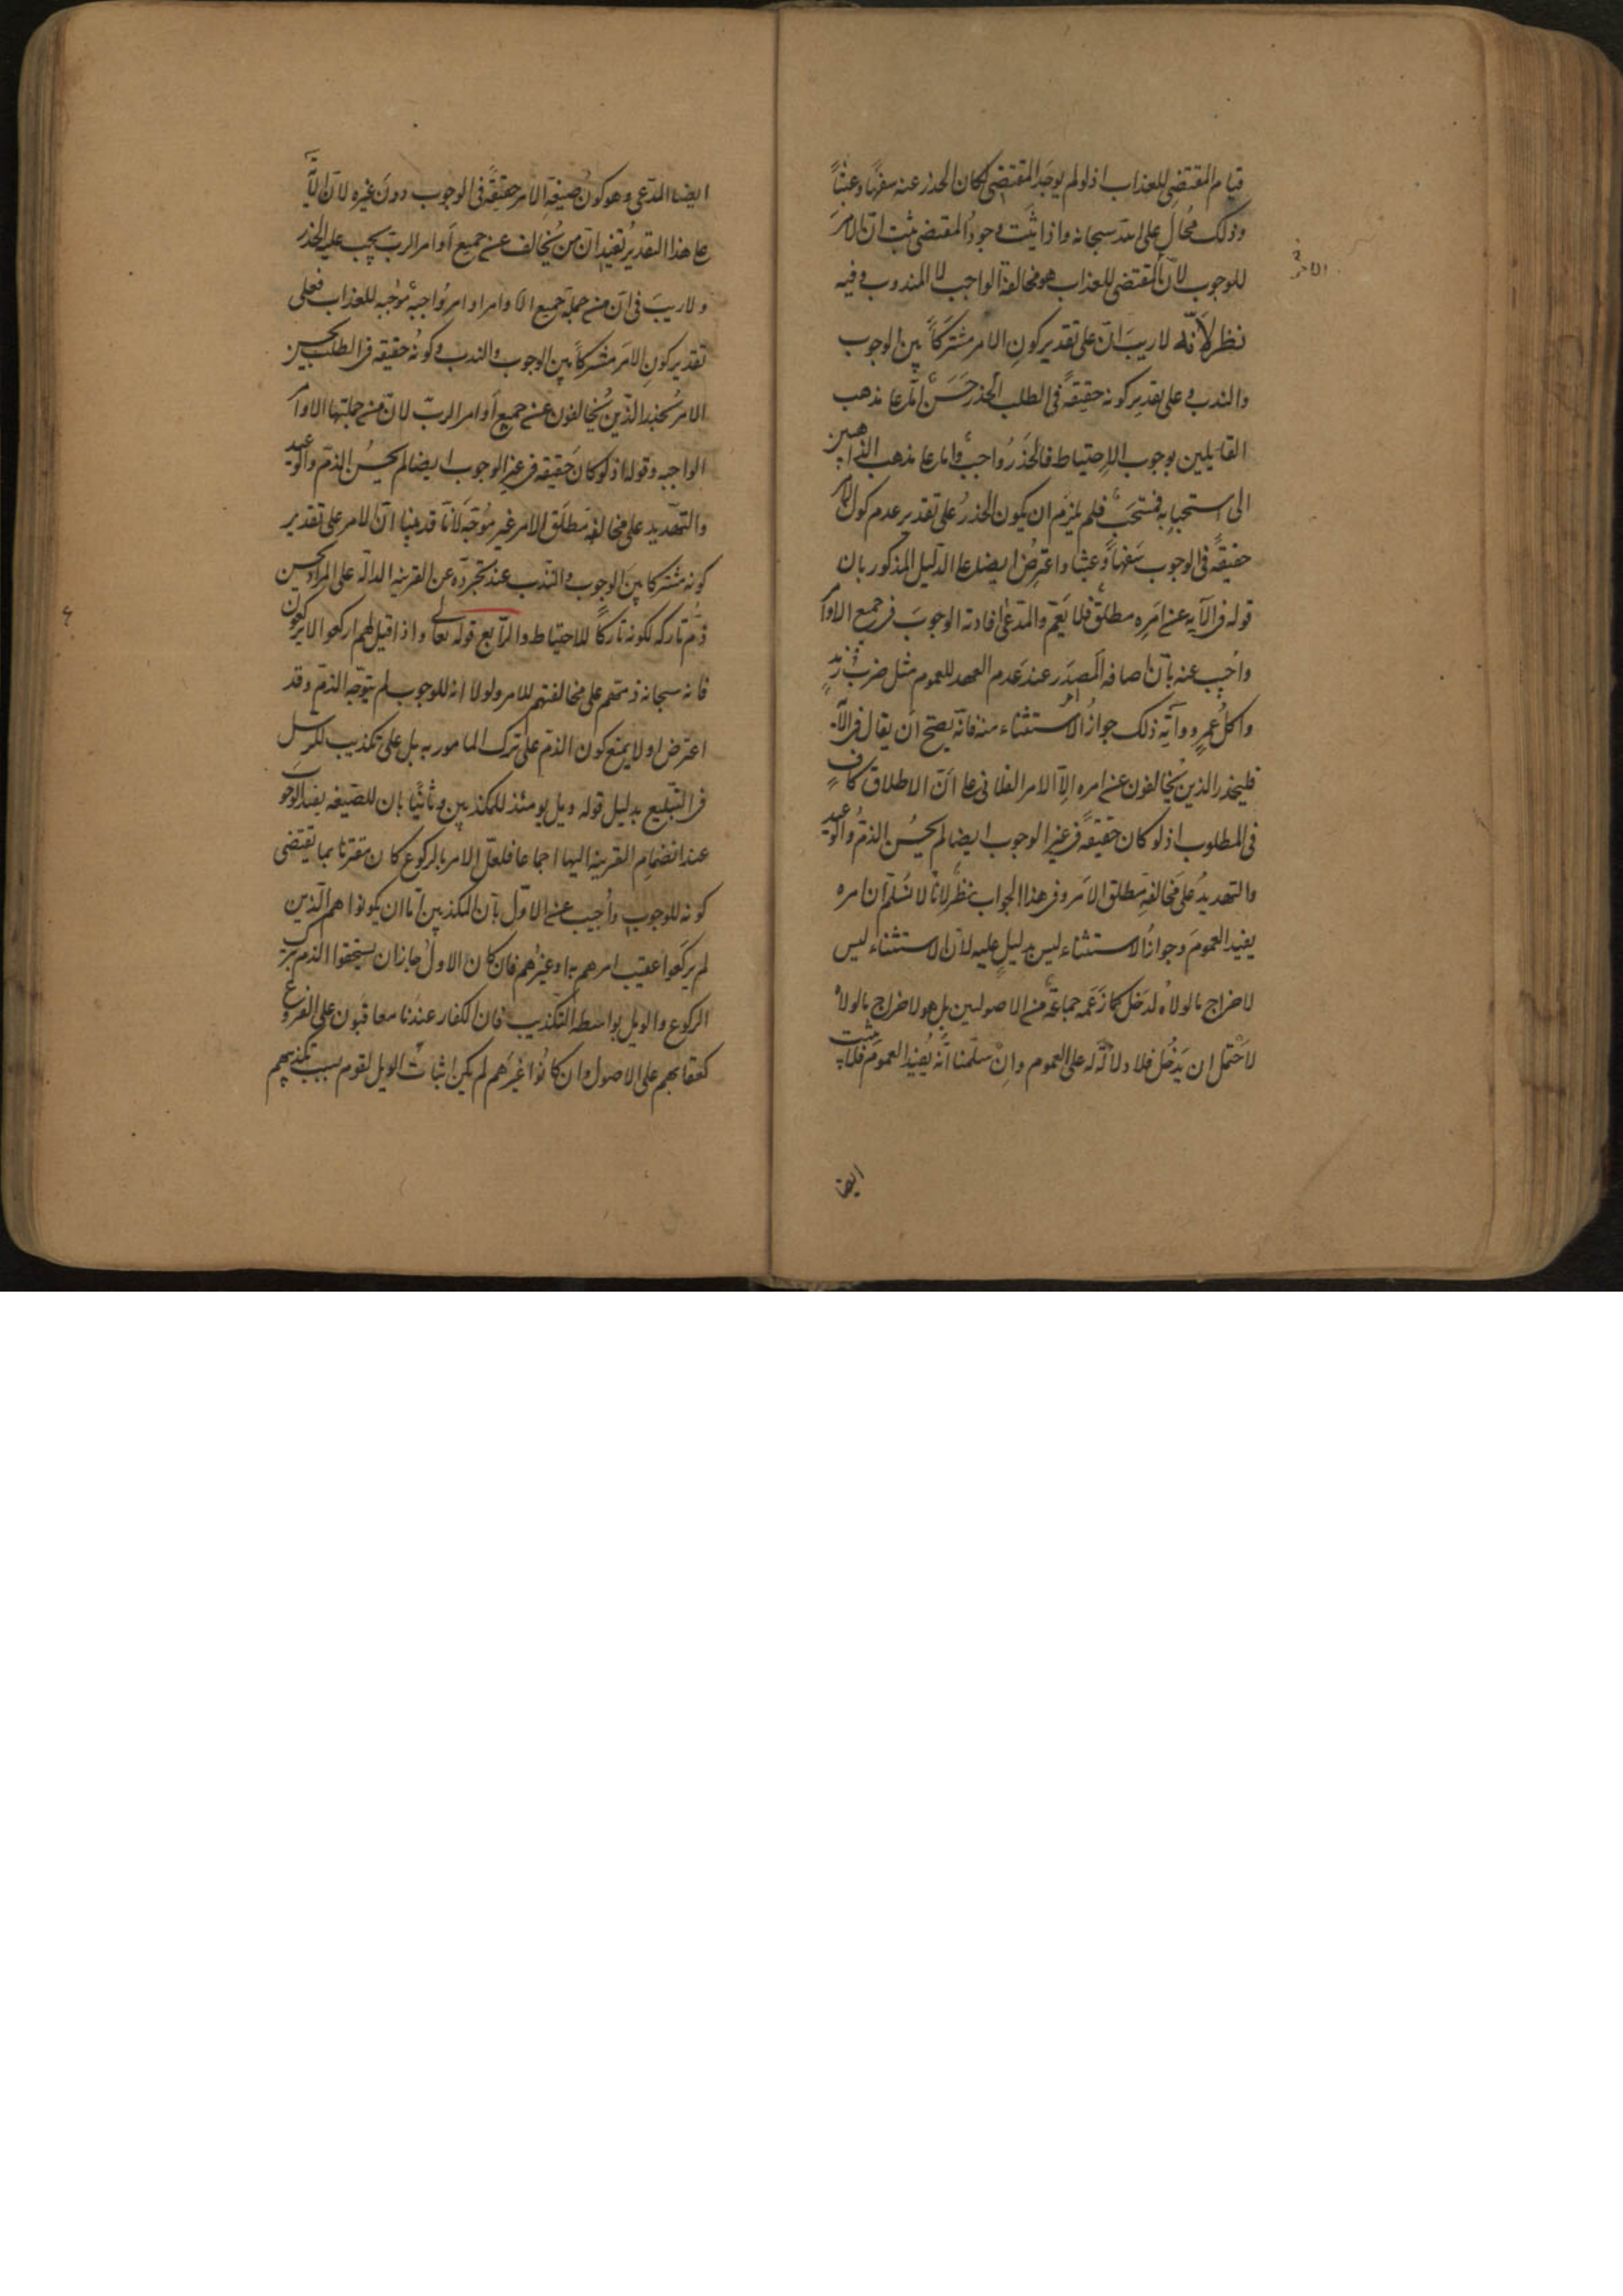 قيام المقتضى للعذاب اذ لو لم يوجد المقتضى لكان الحذر عنه سفهًا وعبثًا
وذلك مُحال على الله سبحانه واذا ثبت وجودُ المقتضى ثبت انّ الامرَ
للوجوب لانّ المقتضى للعذاب هو مخالفة الواجب لا المندوب وفيه
نظر لانّه لا ريبَ انّ على تقدير كونِ الامر مشتركًا بين الوجوب
والندب وعلى تقديرِ كونه حقيقةً فى الطلب الحذر حَسَنٌ امّا على مذهب
القايلين بوجوب الاحتياط فالحَذَرُ واجبٌ واما على مذهب الذاهبين
الى استحبابه فمستحَبٌ فلم يلزم ان يكون الحذرُ على تقديرِ عدم كون الامر
حقيقةً فى الوجوب سَفهًا وعبثا واعتُرِضَ ايضا على الدليل المذكور بان
قوله فى الآيه عن امرِه مطلقٌ فلا يَعُمّ والمدّعى افادته الوجوبَ فى جميع الاوامر
واُجيب عنه بانّ اضافه المصدَر عند عَدم العهد للعموم مثل ضرب زيدٍ
واكل عمرٍو وآيةُ ذلك جوازُ الاستثناء منه فانّه يصحّ ان يقال فى الآية
فليحذر الذين يُخالفون عن امره الّا الامر الفلانى على انّ الاطلاق كافٍ
فى المطلوب اذ لو كان حقيقةً فى غيرِ الوجوب ايضا لم يحسُن الذمُّ والوعيد
والتهديدُ على مخالفةِ مطلق الامر وفى هذا الجواب نظرٌ لانّا لا نُسلّم ان امره
يفيد العمومَ وجوازُ الاستثناء ليس بدليلٍ عليه لانّ الاستثناء ليس
لاخراج ما لولاهُ لدَخَل كما زَعَمه جماعةٌ من الاصوليين بل هو لاخراج ما لولاهُ
لاحْتمل ان يَدخُل فلا دلالَة له على العموم وانْ سلّمنا انّه يُفيد العمومَ فلا يثبت
ايضا
الامر
ايضا المدّعى وهو كونُ صيغةِ الامر حقيقةً فى الوجوب دونَ غيره لانّ الآية
على هذا التقدير تُفيد انّ من يُخالف عن جميع أوامر الربّ يجب عليه الحذر
ولا ريبَ فى انّ من جملة جميع الاوامر اوامرُ واجبةٌ موجُبه للعذاب فعلى
تقدير كونِ الامرَ مشتركًا بين الوجوب والندب وكونُه حقيقه فى الطلب يحسن
الامرُ بحذر الّذين يُخالفون عن جميع أوامر الربّ لانّ من جملتها الاوامر
الواجبه وقوله اذ لو كان حقيقه فى غير الوجوب ايضا لم يحسُن الذمّ والوعيد
والتهديد على مخالفه مطلَق الامر غير مُوَجّه لانّا قد بيّنا انّ الامر على تقدير
كونه مشتركا بينَ الوجوب والندب عند تجرّده عن القرينه الدالّه على المراد يحسن
ذُمّ تاركه لكونه تاركًا للاحتياط والرّابع قوله تعالى واذا قيل لهم اركعوا لا يركعون
فانه سبحانه ذمّهم على مخالفتهم للامر ولولا انه للوجوب لم يتوجّه الذمّ وقد
اعترض اولا بمنع كون الذمّ على ترك المامور به بل على تكذيب الرسل
فى التبليغ بدليل قوله ويل يومئذ للمكذبين وثانيًا بان الصّيغه تفيد الوجوب
عند انضمام القرينه اليها اجماعا فلعلّ الامر بالركوع كان مقترنا بما يقتضى
كونه للوجوب واُجيب عن الاوّل بانّ المكذبين امّا ان يكونوا هم الّذين
لم يركعوا عقيب امرهم به او غيرُهم فان كان الاولُ جاز ان يستحقوا الذم بترك
الركوع والويل بواسطه التكذيب فان الكفار عندنا معاقبون على الفروع
كعقابهم على الاصول وان كانُوا غيرَهم لم يكن اثبات الويل لقوم بسبب تكذيبهم